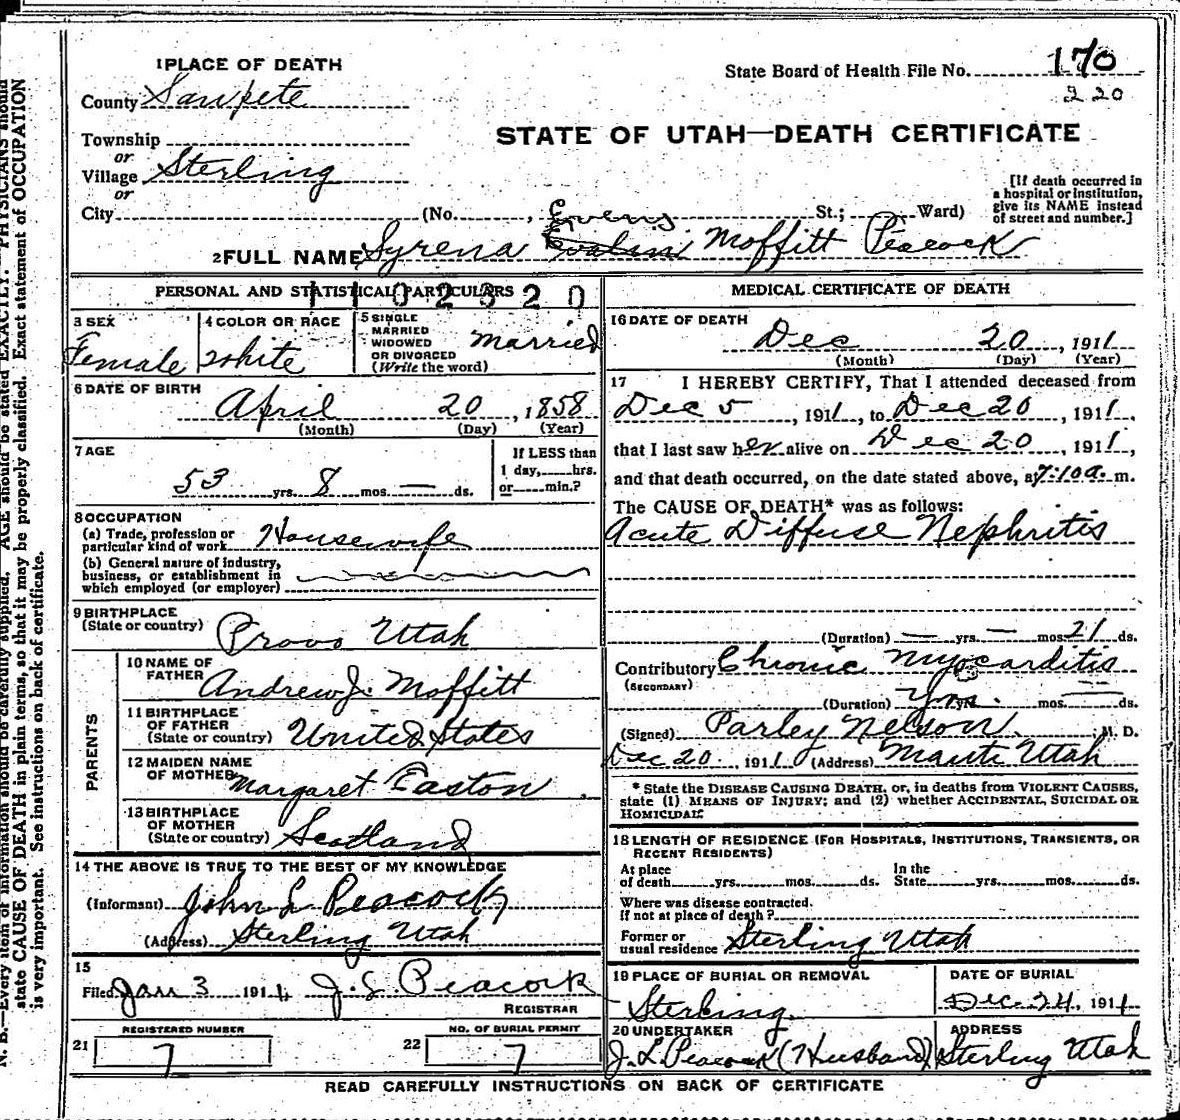 1 PLACE OF DEATH
State Board of Health File No. 170
220
County Sanpete
STATE OF UTAH—DEATH CERTIFICATE
Township
or
Village Sterling
or
City (No. , St.; Ward)
[If death occurred in
a hospital or institution,
give its NAME instead
of street and number.]
2 FULL NAME Syrena Moffitt Peacock
PERSONAL AND STATISTICAL PARTICULARS
1102320
3 SEX
Female
4 COLOR OR RACE
White
5 SINGLE
MARRIED
WIDOWED
OR DIVORCED
(Write the word)
Married
6 DATE OF BIRTH
April 20, 1858
(Month) (Day) (Year)
7 AGE
53 yrs. 8 mos. — ds.
If LESS than
1 day, hrs.
or min.?
8 OCCUPATION
(a) Trade, profession or
particular kind of work Housewife
(b) General nature of industry,
business, or establishment in
which employed (or employer)
9 BIRTHPLACE
(State or country) Provo Utah
PARENTS
10 NAME OF
FATHER Andrew J. Moffitt
11 BIRTHPLACE
OF FATHER
(State or country) United States
12 MAIDEN NAME
OF MOTHER Margaret Easton
13 BIRTHPLACE
OF MOTHER
(State or country) Scotland
14 THE ABOVE IS TRUE TO THE BEST OF MY KNOWLEDGE
(Informant) John L Peacock
(Address) Sterling Utah
15
Filed Jan 3 191 J. L. Peacock
REGISTRAR
REGISTERED NUMBER
21 7
NO. OF BURIAL PERMIT
22 7
MEDICAL CERTIFICATE OF DEATH
16 DATE OF DEATH
Dec 20, 1911
(Month) (Day) (Year)
17 I HEREBY CERTIFY, That I attended deceased from
Dec 5, 1911, to Dec 20, 1911,
that I last saw her alive on Dec 20, 1911,
and that death occurred, on the date stated above, at 7:10 a. m.
The CAUSE OF DEATH* was as follows:
Acute Diffuse Nephritis
(Duration) — yrs. — mos. 21 ds.
Contributory Chronic Myocarditis
(SECONDARY)
(Duration) yrs. mos. ds.
(Signed) Parley Nelson M. D.
Dec 20. 1911 (Address) Manti Utah
* State the DISEASE CAUSING DEATH, or, in deaths from VIOLENT CAUSES,
state (1) MEANS OF INJURY; and (2) whether ACCIDENTAL, SUICIDAL OR
HOMICIDAL.
18 LENGTH OF RESIDENCE (FOR HOSPITALS, INSTITUTIONS, TRANSIENTS, OR
RECENT RESIDENTS)
At place
of death yrs. mos. ds.
In the
State yrs. mos. ds.
Where was disease contracted.
If not at place of death?
Former or
usual residence Sterling Utah
19 PLACE OF BURIAL OR REMOVAL
Sterling.
DATE OF BURIAL
Dec. 24, 1911
20 UNDERTAKER
J. L. Peacock (Husband)
ADDRESS
Sterling Utah
READ CAREFULLY INSTRUCTIONS ON BACK OF CERTIFICATE
N. B.—Every item of information should be carefully supplied. AGE should be stated EXACTLY. PHYSICIANS should
state CAUSE OF DEATH in plain terms, so that it may be properly classified. Exact statement of OCCUPATION
is very important. See instructions on back of certificate.